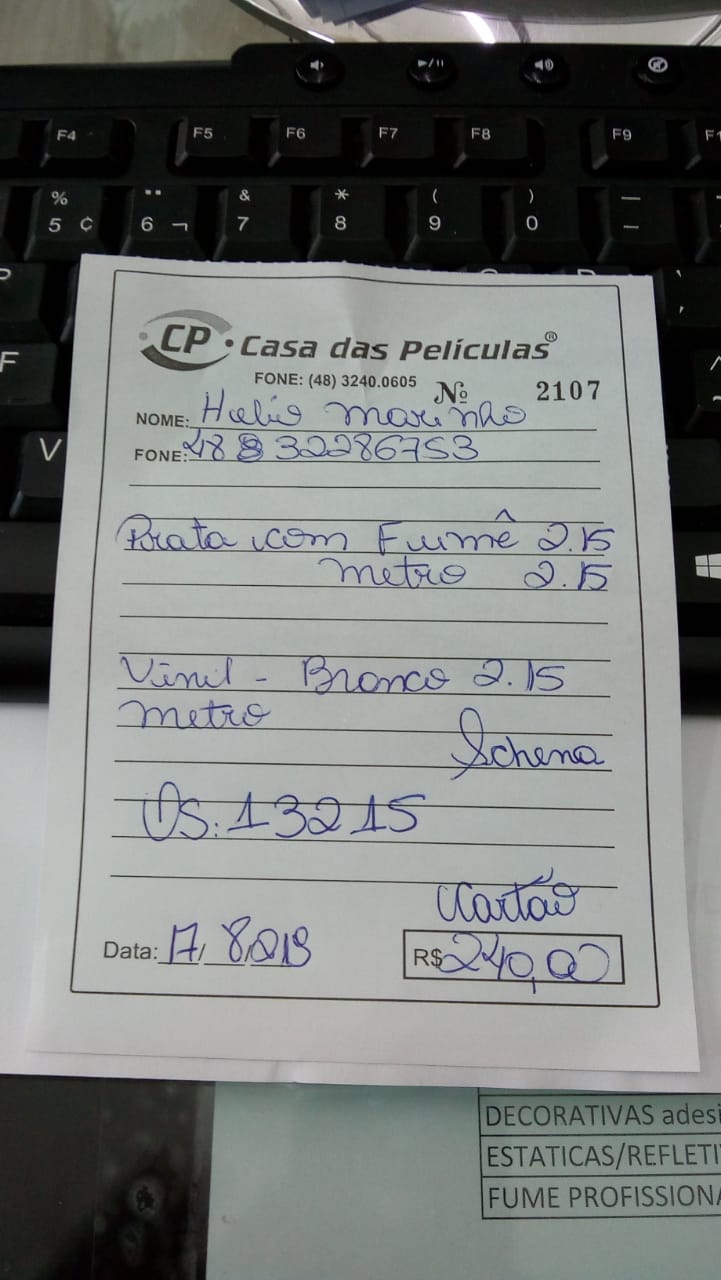 F4 F5 F6 F7 F8 F9
% 5 ¢ 6 ¬ & 7 * 8 ( 9 ) 0
F
V
CP Casa das Películas®
FONE: (48) 3240.0605 Nº 2107
NOME: Helio Marinho
FONE: 48 8 32286753
Prata com Fumê 2.15
metro 2.15
Vinil - Branco 2.15
metro
Schena
OS: 13215
Cartão
Data: 17/8/2018
R$ 240,00
DECORATIVAS adesi
ESTATICAS/REFLETI
FUME PROFISSIONA